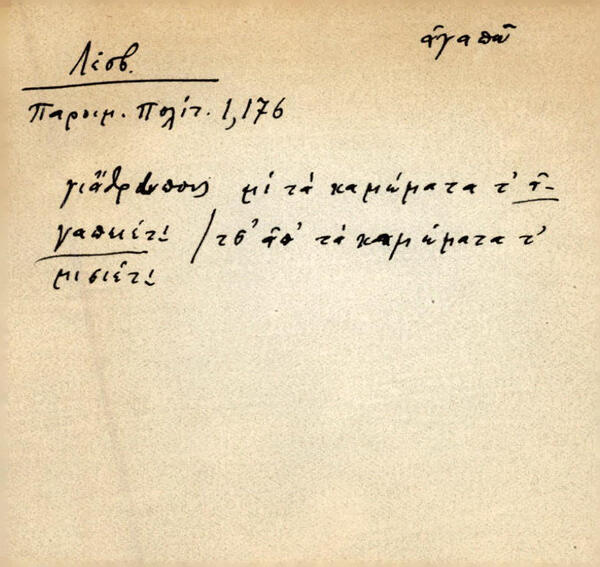 ἀγαπῶ
Λέσβ.
Παροιμ. Πολίτ. 1,176
γιἄθρουπους μὶ τὰ καμώματα τ᾿ ἀ-
γαπκιέτι / τσ᾿ ἀπ᾿ τὰ καμώματα τ᾿
μισιέτι